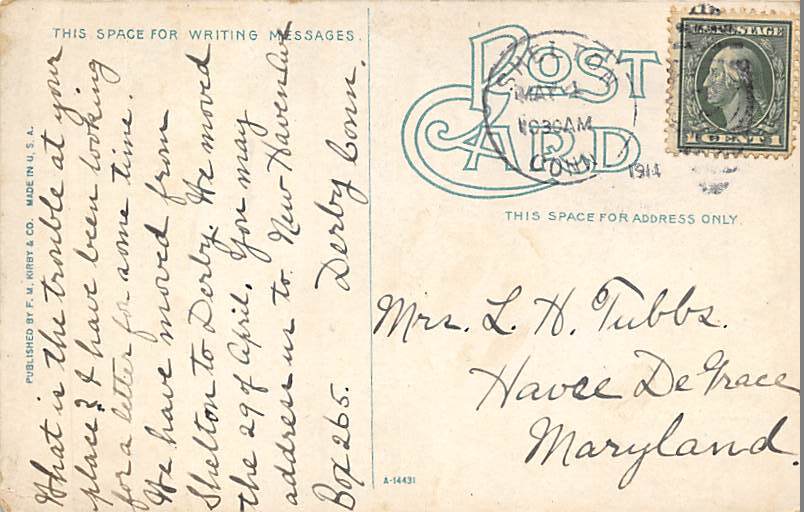 THIS SPACE FOR WRITING MESSAGES.
What is the trouble at your
place? I have been looking
for a letter for some time.
We have moved from
Shelton to Derby. We moved
the 29 of April. You may
address us to New Haven Ave
Box 265. Derby Conn.
PUBLISHED BY F. M. KIRBY & CO. MADE IN U. S. A.
POST
CARD
SHELTON
MAY 1
1030AM
CONN
1914
U.S. POSTAGE
1 CENT 1
THIS SPACE FOR ADDRESS ONLY.
Mrs. L. H. Tubbs.
Havre De Grace
Maryland.
A-14431